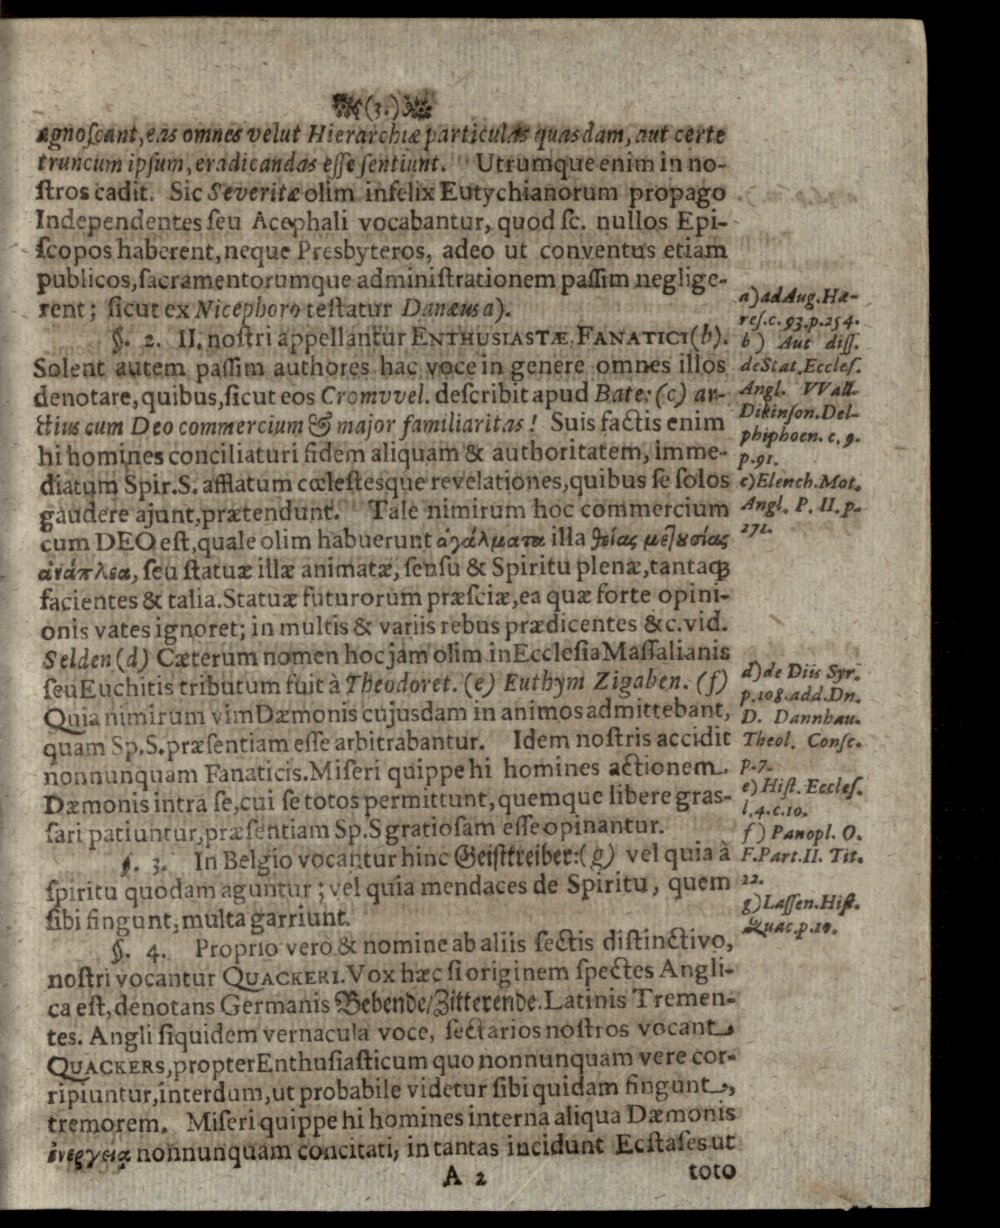 (3.)
agnoſcant, eas omnes velut Hierarchiæ particulas quasdam, aut certe
truncum ipſum, eradicandas eſſe ſentiunt. Utrumque enim in no-
ſtros cadit. Sic Severitæ olim infelix Eutychianorum propago
Independentes ſeu Acephali vocabantur, quod ſc. nullos Epi-
ſcopos haberent, neque Presbyteros, adeo ut conventus etiam
publicos, ſacramentorumque adminiſtrationem paſſim neglige-
rent; ſicut ex Nicephoro teſtatur Danæus a).
§. 2. II. noſtri appellantur ENTHUSIASTÆ, FANATICI (b).
Solent autem paſſim authores hac voce in genere omnes illos
denotare, quibus, ſicut eos Cromvvel. deſcribit apud Bate: (c) ar-
ctius cum Deo commercium & major familiaritas! Suis factis enim
hi homines conciliaturi fidem aliquam & authoritatem, imme-
diatum Spir. S. afflatum cœleſtesque revelationes, quibus ſe ſolos
gaudere ajunt, prætendunt. Tale nimirum hoc commercium
cum DEO eſt, quale olim habuerunt ἀγάλματα illa θείας μετουσίας
ἀνάπλεα, ſeu ſtatuæ illæ animatæ, ſenſu & Spiritu plenæ, tantaꝗ
facientes & talia. Statuæ futurorum præſciæ, ea quæ forte opini-
onis vates ignoret; in multis & variis rebus prædicentes &c. vid.
Selden (d) Cæterum nomen hoc jam olim in Eccleſia Maſſalianis
ſeu Euchitis tributum fuit à Theodoret. (e) Euthym Zigaben. (f)
Quia nimirum vim Dæmonis cujusdam in animos admittebant,
quam Sp. S. præſentiam eſſe arbitrabantur. Idem noſtris accidit
nonnunquam Fanaticis. Miſeri quippe hi homines actionem
Dæmonis intra ſe, cui ſe totos permittunt, quemque libere graſ-
ſari patiuntur, præſentiam Sp. S gratioſam eſſe opinantur.
§. 3. In Belgio vocantur hinc Geiſttreiber: (g) vel quia à
ſpiritu quodam aguntur; vel quia mendaces de Spiritu, quem
ſibi fingunt, multa garriunt.
§. 4. Proprio vero & nomine ab aliis ſectis diſtinctivo,
noſtri vocantur QUACKERI. Vox hæc ſi originem ſpectes Angli-
ca eſt, denotans Germanis Bebende/Zitterende. Latinis Tremen-
tes. Angli ſiquidem vernacula voce, ſectarios noſtros vocant
QUACKERS, propter Enthuſiaſticum quo nonnunquam vere cor-
ripiuntur, interdum, ut probabile videtur ſibi quidam fingunt,
tremorem. Miſeri quippe hi homines interna aliqua Dæmonis
ἐνεργείᾳ nonnunquam concitati, in tantas incidunt Ecſtaſes ut
A 2 toto
a) ad Aug. Hæ-
reſ. c. 93. p. 254.
b) Aut diſſ.
de Stat. Eccleſ.
Angl. VVall.
Dikinſon. Del-
phiphoen. c. 9.
p. 91.
c) Elench. Mot.
Angl. P. II. p.
271.
d) de Diis Syr.
p. 108. add. Dn.
D. Dannhau.
Theol. Conſc.
p. 7.
e) Hiſt. Eccleſ.
l. 4. c. 10.
f) Panopl. O.
F. Part. II. Tit.
22.
g) Laſſen. Hiſt.
Quac. p. 10.